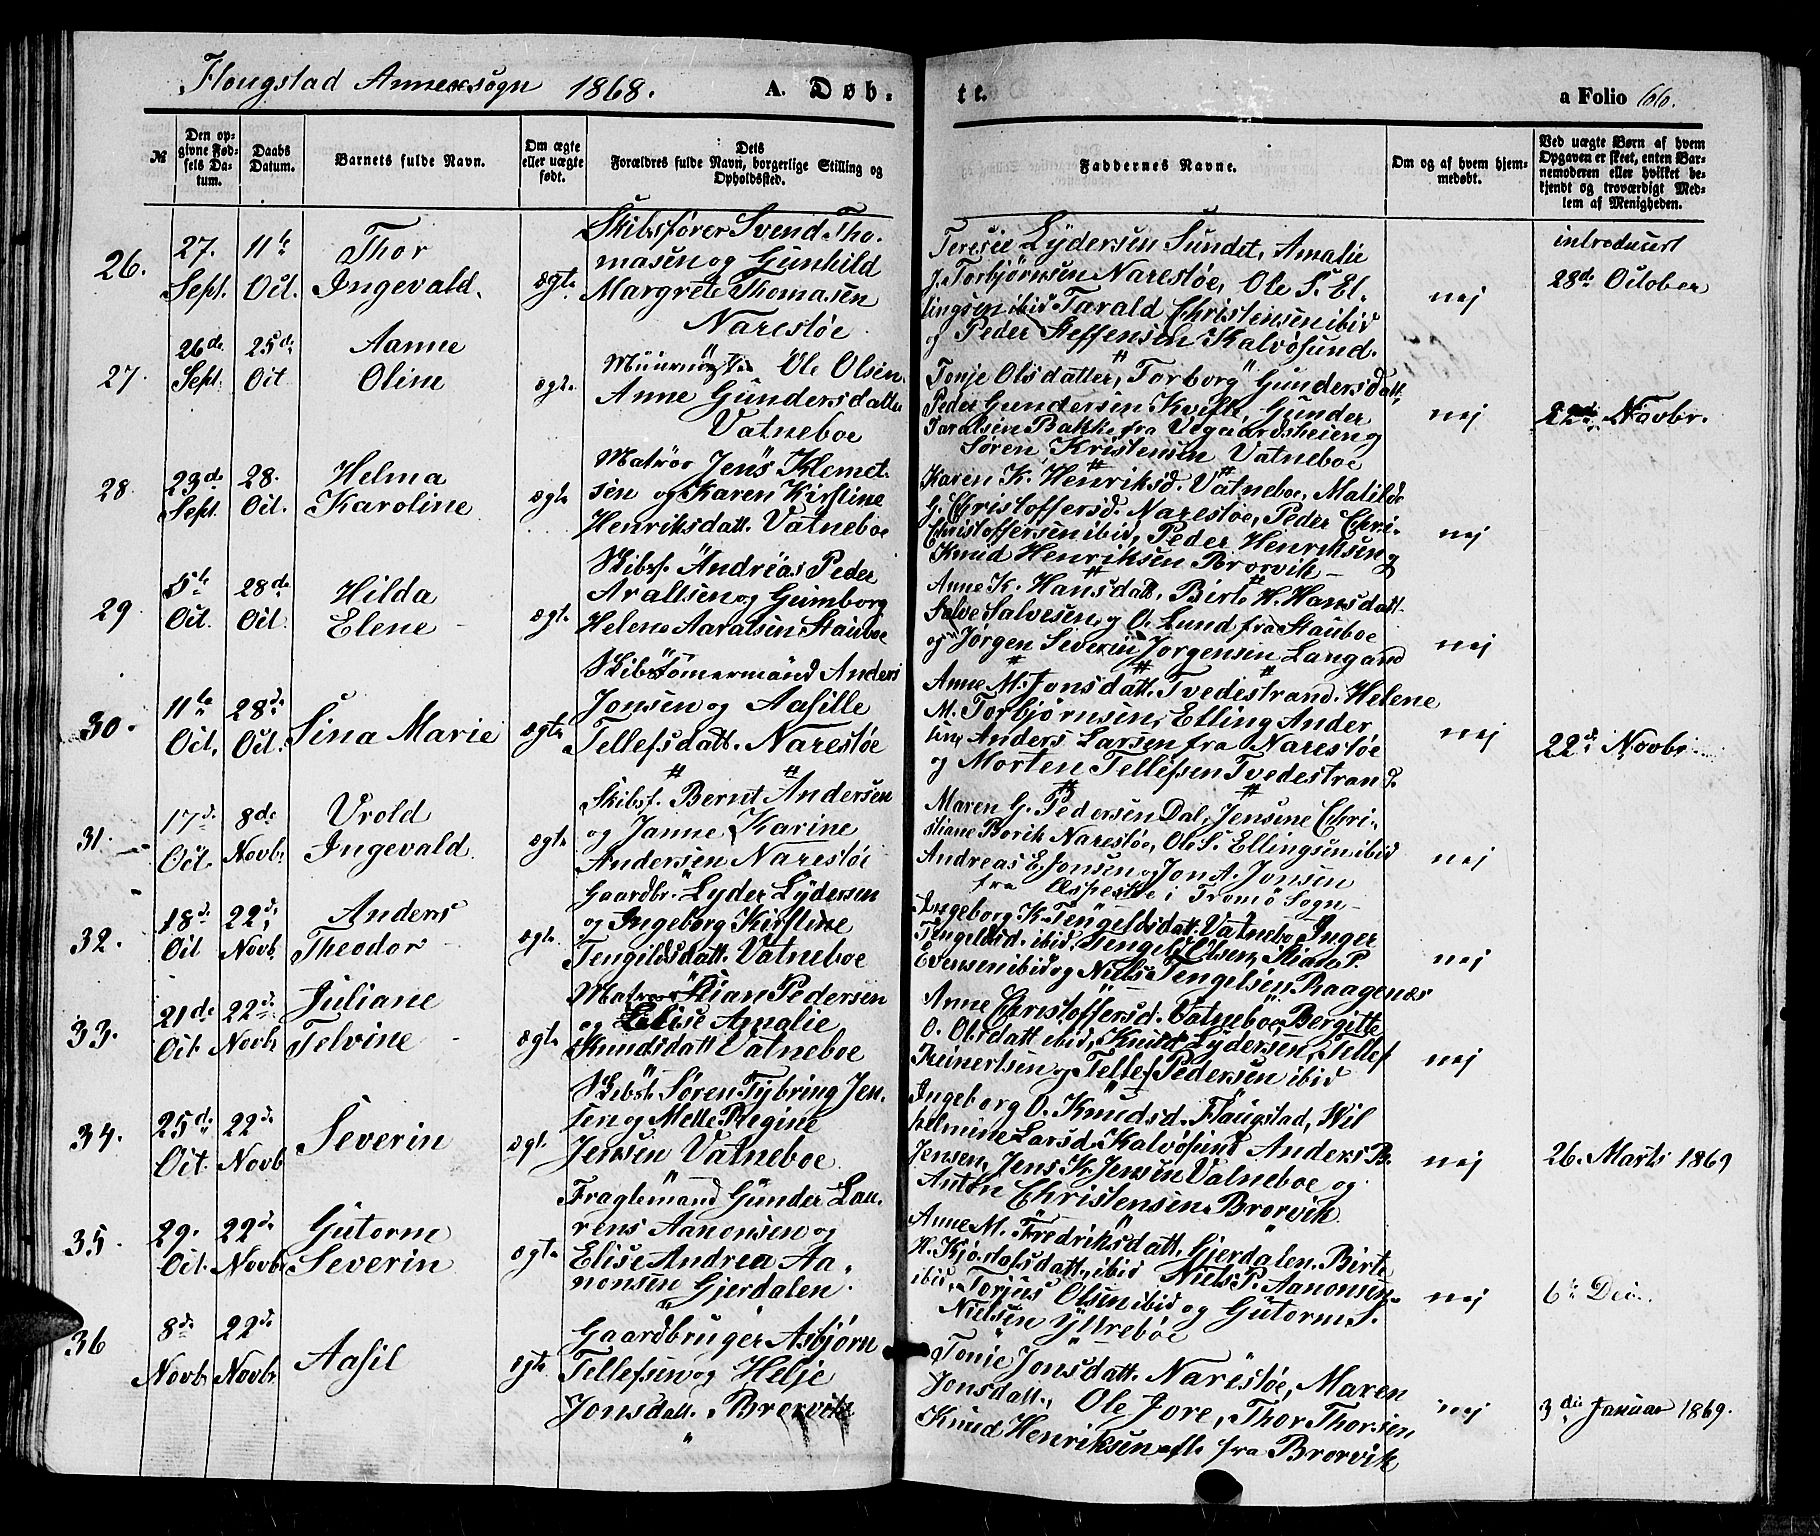 Flougstad Annexsogn 1868. A. Døb- te. a Folio 66.
№
Den opgivne Fødsels Datum.
Daabs Datum.
Barnets fulde Navn.
Om ægte eller uægte født.
Dets Forældres fulde Navn, borgerlige Stilling og Opholdssted.
Faddernes Navne.
Om og af hvem hjemmedøbt.
Ved uægte Børn af hvem Opgaven er skeet, enten Barnemoderen eller hvilket bekjendt og troværdigt Medlem af Menigheden.
26. 27. Sept. 11te Oct. Thor Ingevald. ægte.
Skibsfører Svend Tho-
masen og Gunhild
Margrete Thomasen
Narestøe
Teresie Lydersen Sundet, Amalie
J. Torbjørnsen Narestøe, Ole S. El-
lingsen ibid Tarald Christensen ibid
og Peder Steffensen Kalvøsund.
nej
introducert
28de October
27. 26de Sept. 25de Oct Aanne Oline ægte
Ole Olsen.
Anne Gundersdatter
Vatneboe
Tonje Olsdatter, Torborg Gundersdatt,
Peder Gundersen Kvifte, Gunder
Taralsen Bakke fra Vegaardsheien og
Søren Kristensen Vatneboe
nej
22de Novbr.
28. 23de Sept. 28. Oct. Helma Karoline ægte
Matros Jens Klemet-
sen og Karen Kirstine
Henriksdatt. Vatneboe
Karen K. Henriksd. Vatneboe, Matilde
G. Christoffersd. Narestøe, Peder Chri-
Christoffersen ibid, Peder Henriksen og
Knud Henriksen Brorvik
nej
29. 5te Oct. 28de Oct. Hilda Elene ægte.
Skibsf. Andreas Peder
Araltsen og Gumborg
Helene Aaralsen Stauboe
Anne K. Hansdatt, Birte H. Hansdatt.
Salve Salvesen, og O. Lund fra Stauboe
og Jørgen Severin Jørgensen Langand
nej
30. 11te Oct. 28de Oct. Sina Marie ægte
Skibstømermand Anders
Jonsen og Aasille
Tellefsdatt. Narestøe
Anne M. Jonsdatt. Tvedestrand. Helene
M. Torbjørnsen, Elling Ander
sen, Anders Larsen fra Narestøe
og Morten Tellefsen Tvedestrand.
nej
22de Novbr.
31. 17de Oct. 8de Novbr Vrold Ingevald ægte
Skibsf. Bernt Andersen
og Janne Karine
Andersen Narestøe
Maren G. Pedersen Dal, Jensine Chri-
stiane Borik Narestøe, Ole S. Ellingsen ibid
Andreas E. Jonsen og Jon A. Jonsen
fra i Tromø Sogn
nej
32. 18de Oct 22de Novb. Anders Theodor ægte.
Gaardbr. Lyder Lydersen
og Ingeborg Kirstine
Tengildsdatt. Vatneboe
Ingeborg K. Tengeldsdatt. Vatneboe, Inger
Tengeldsd. ibid. Tengel Olsen, Stian P.
Evensen ibid og Niels Tengelsen Raagenæs
nej
33. 21de Oct 22de Novbr Juliane Telvine ægte
Matros Stian Pedersen
og Elise Amalie
Knudsdatt Vatneboe
Anne Christoffersd. Vatneboe, Bergitte
O. Olsdatt ibid, Knud Lydersen, Tellef
Reinertsen og Tellef Pedersen ibid
nej
34. 25de Oct. 22de Novb Severin ægt.
Skibst. Søren Tybring Jen-
sen og Mette Regine
Jensen Vatneboe
Ingeborg O. Knudsd. Flaugstad, Wil
helmine Larsd. Kalvøsund Anders B.
Jensen, Jens K. Jensen Vatneboe og
Anton Christensen Brorvik
nej
26. Marts 1869
35. 29. Oct. 22de Novbr Gutorm Severin ægte
Fragtemand Gunder Lau-
rens Aanonsen og
Elise Andrea Aa-
nonsen Gjerdalen.
Anne M. Fredriksdatt, Gjerdalen. Birte
H. Kjøstolsdatt., ibid Niels P. Aanonsen
ibid. Torjus Olsen ibid og Gutorm S.
Nielsen Yttrebøe
nej
6te Dec.
36 8de Novbr 22de Novbr Aasil ægte
Gaardbruger Asbjørn
Tellefsen og Helje
Jonsdatt. Brorvik
Tonje Jonsdatt. Narestøe, Maren
Jonsdatt., Ole Jore, Thor Thorsen
Knud Henriksen alle fra Brorvik
nej
3die Januar 1869.